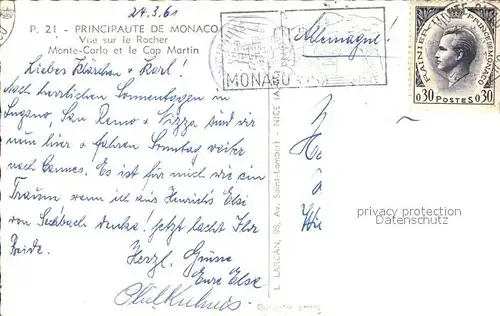 24.3.61
P. 21 - PRINCIPAUTÉ DE MONACO
Vue sur le Rocher
Monte-Carlo et le Cap Martin
Liebes Klärchen & Karl!
Nach herrlichen Sonnentagen in
Lugano, San Remo & Nizza sind wir
nun hier & fahren Sonntag weiter
nach Cannes. Es ist für mich wie ein
Traum wenn ich aus Heinrichs Elsi
von Seckbach denke! Jetzt lacht Ihr
Beide.
Herzl. Grüsse
Eure Else
MONACO
Allemagne!
RAINIER III PRINCE DE MONACO
0,30 POSTES 0,30
L. LARCAN, 98, Av. Saint-Lambert - NICE
privacy protection
Datenschutz